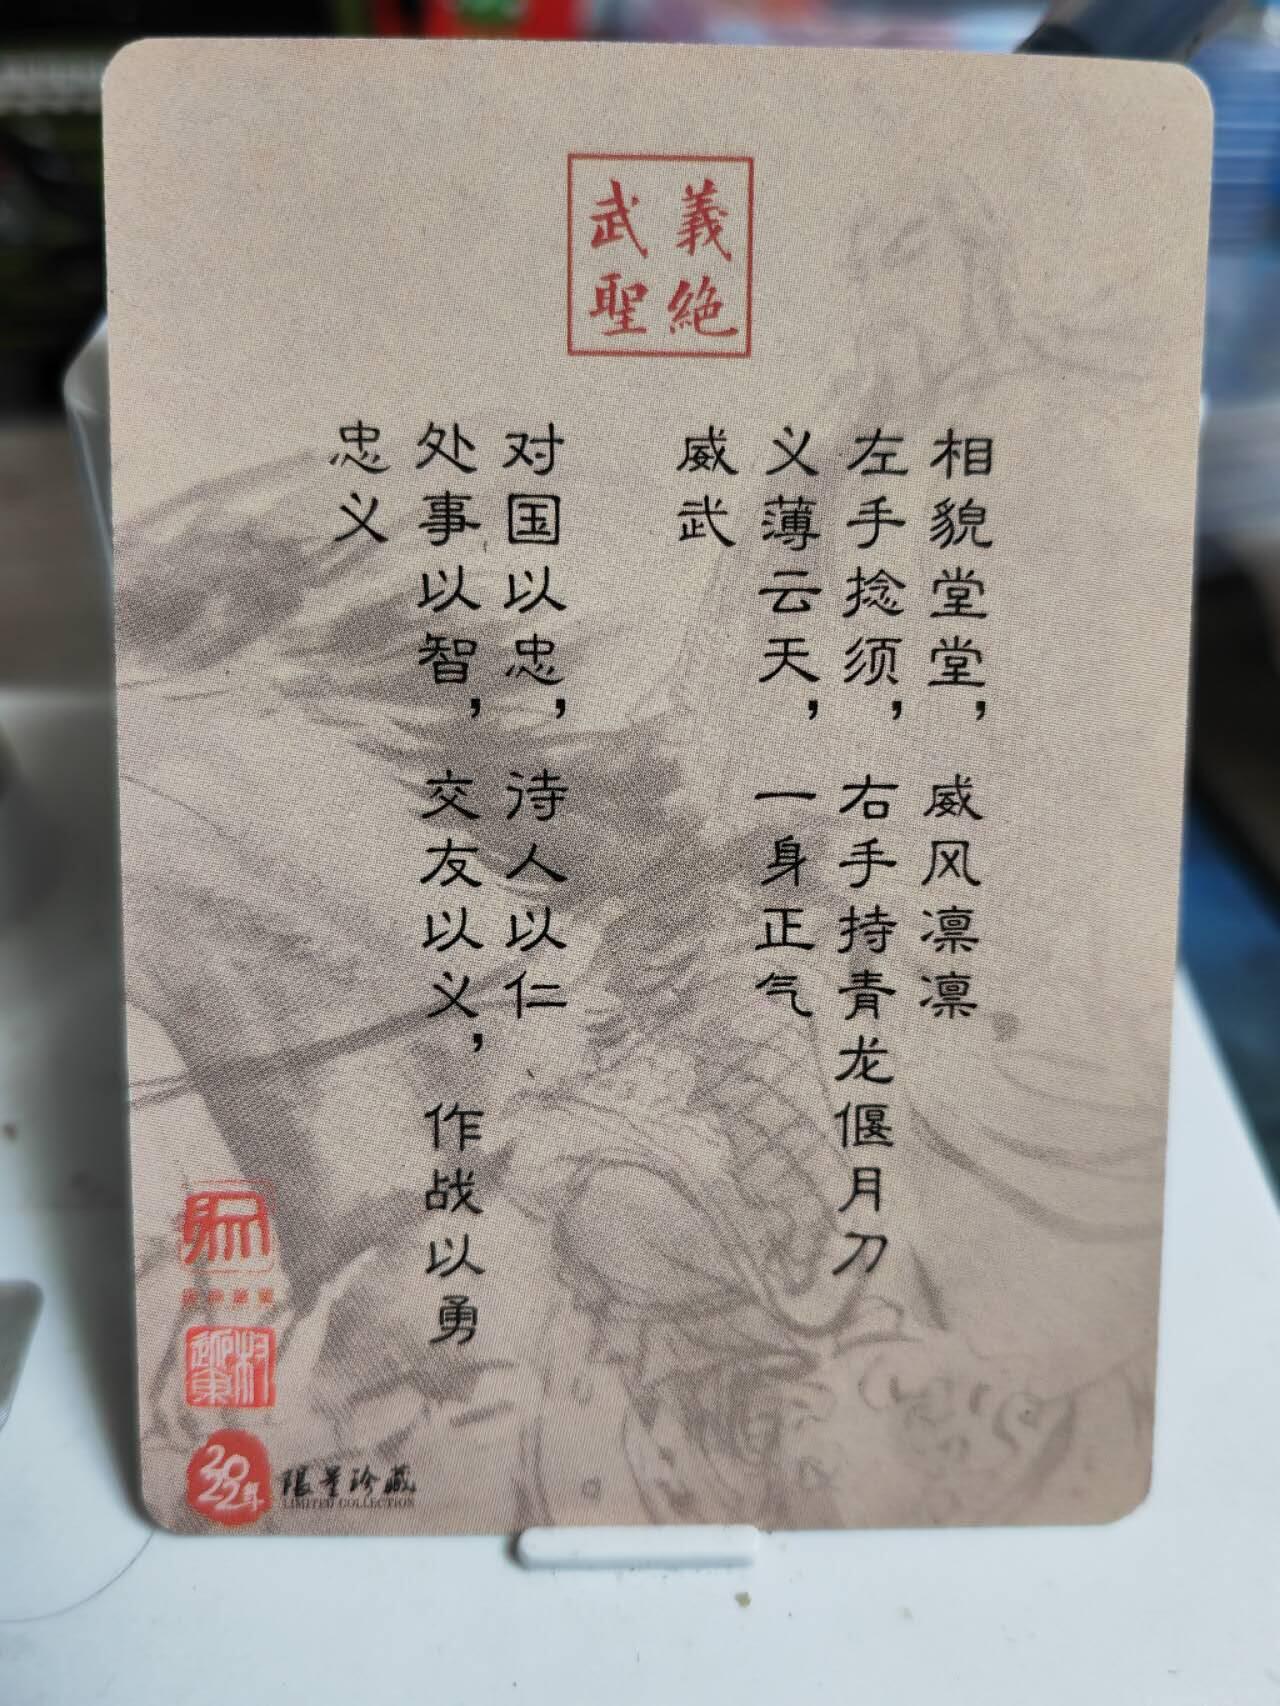 義絶
武聖
相貌堂堂，威风凛凛
左手捻须，右手持青龙偃月刀
义薄云天，一身正气
威武
对国以忠，待人以仁
处事以智，交友以义，作战以勇
忠义
2022年
限量珍藏
LIMITED COLLECTION